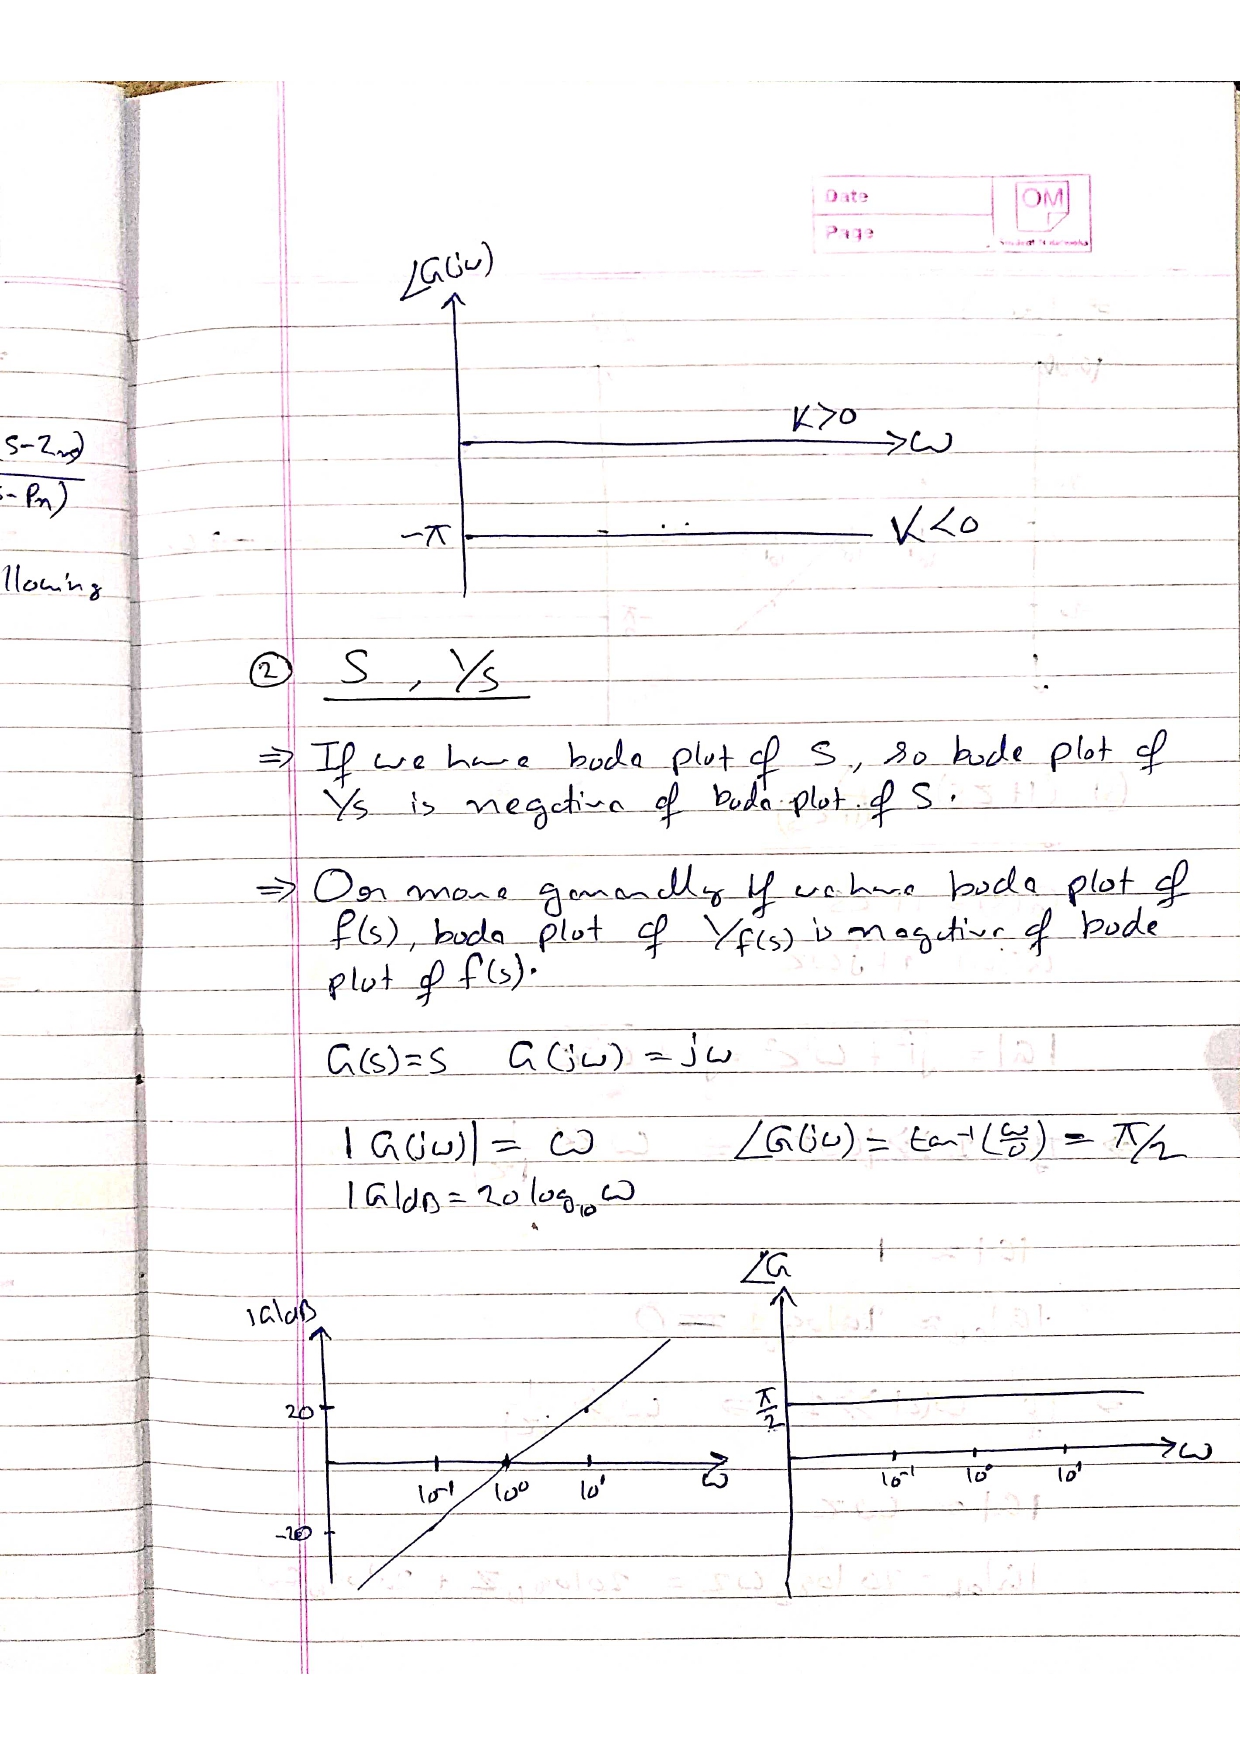 Date
OM
Page
∠G(jω)
K>0
→ω
s-Zm)
s-Pn)
-π
K<0
llowing
② S, 1/s
⇒ If we have bode plot of S, so bode plot of
1/s is negative of bode plot of S.
⇒ Or more generally if we have bode plot of
f(s), bode plot of 1/f(s) is negative of bode
plot of f(s).
G(s)=s G(jω)=jω
|G(jω)|= ω ∠G(jω) = tan⁻¹(ω/0) = π/2
|G|dB = 20 log₁₀ ω
∠G
|G|dB
π/2
20
ω
10⁻¹ 10⁰ 10¹ ω
10⁻¹ 10⁰ 10¹
-20